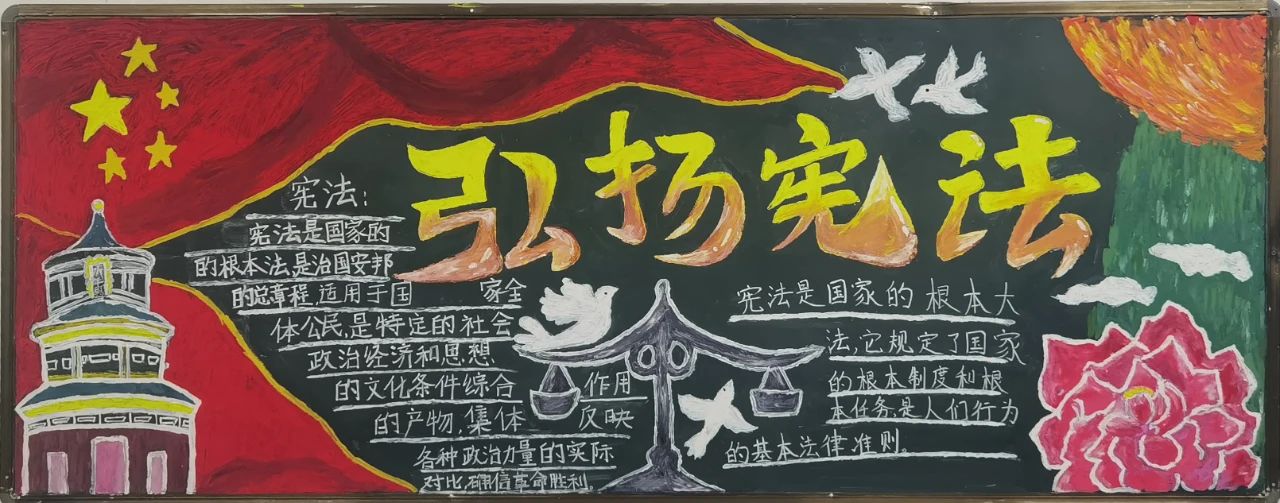 弘扬宪法
宪法:
宪法是国家的
的根本法是治国安邦
的总章程,适用于国家全
体公民,是特定的社会
政治经济和思想
的文化条件综合作用
的产物,集体反映
各种政治力量的实际
对比,确信革命胜利。
宪法是国家的根本大
法,它规定了国家
的根本制度和根
本任务,是人们行为
的基本法律准则。